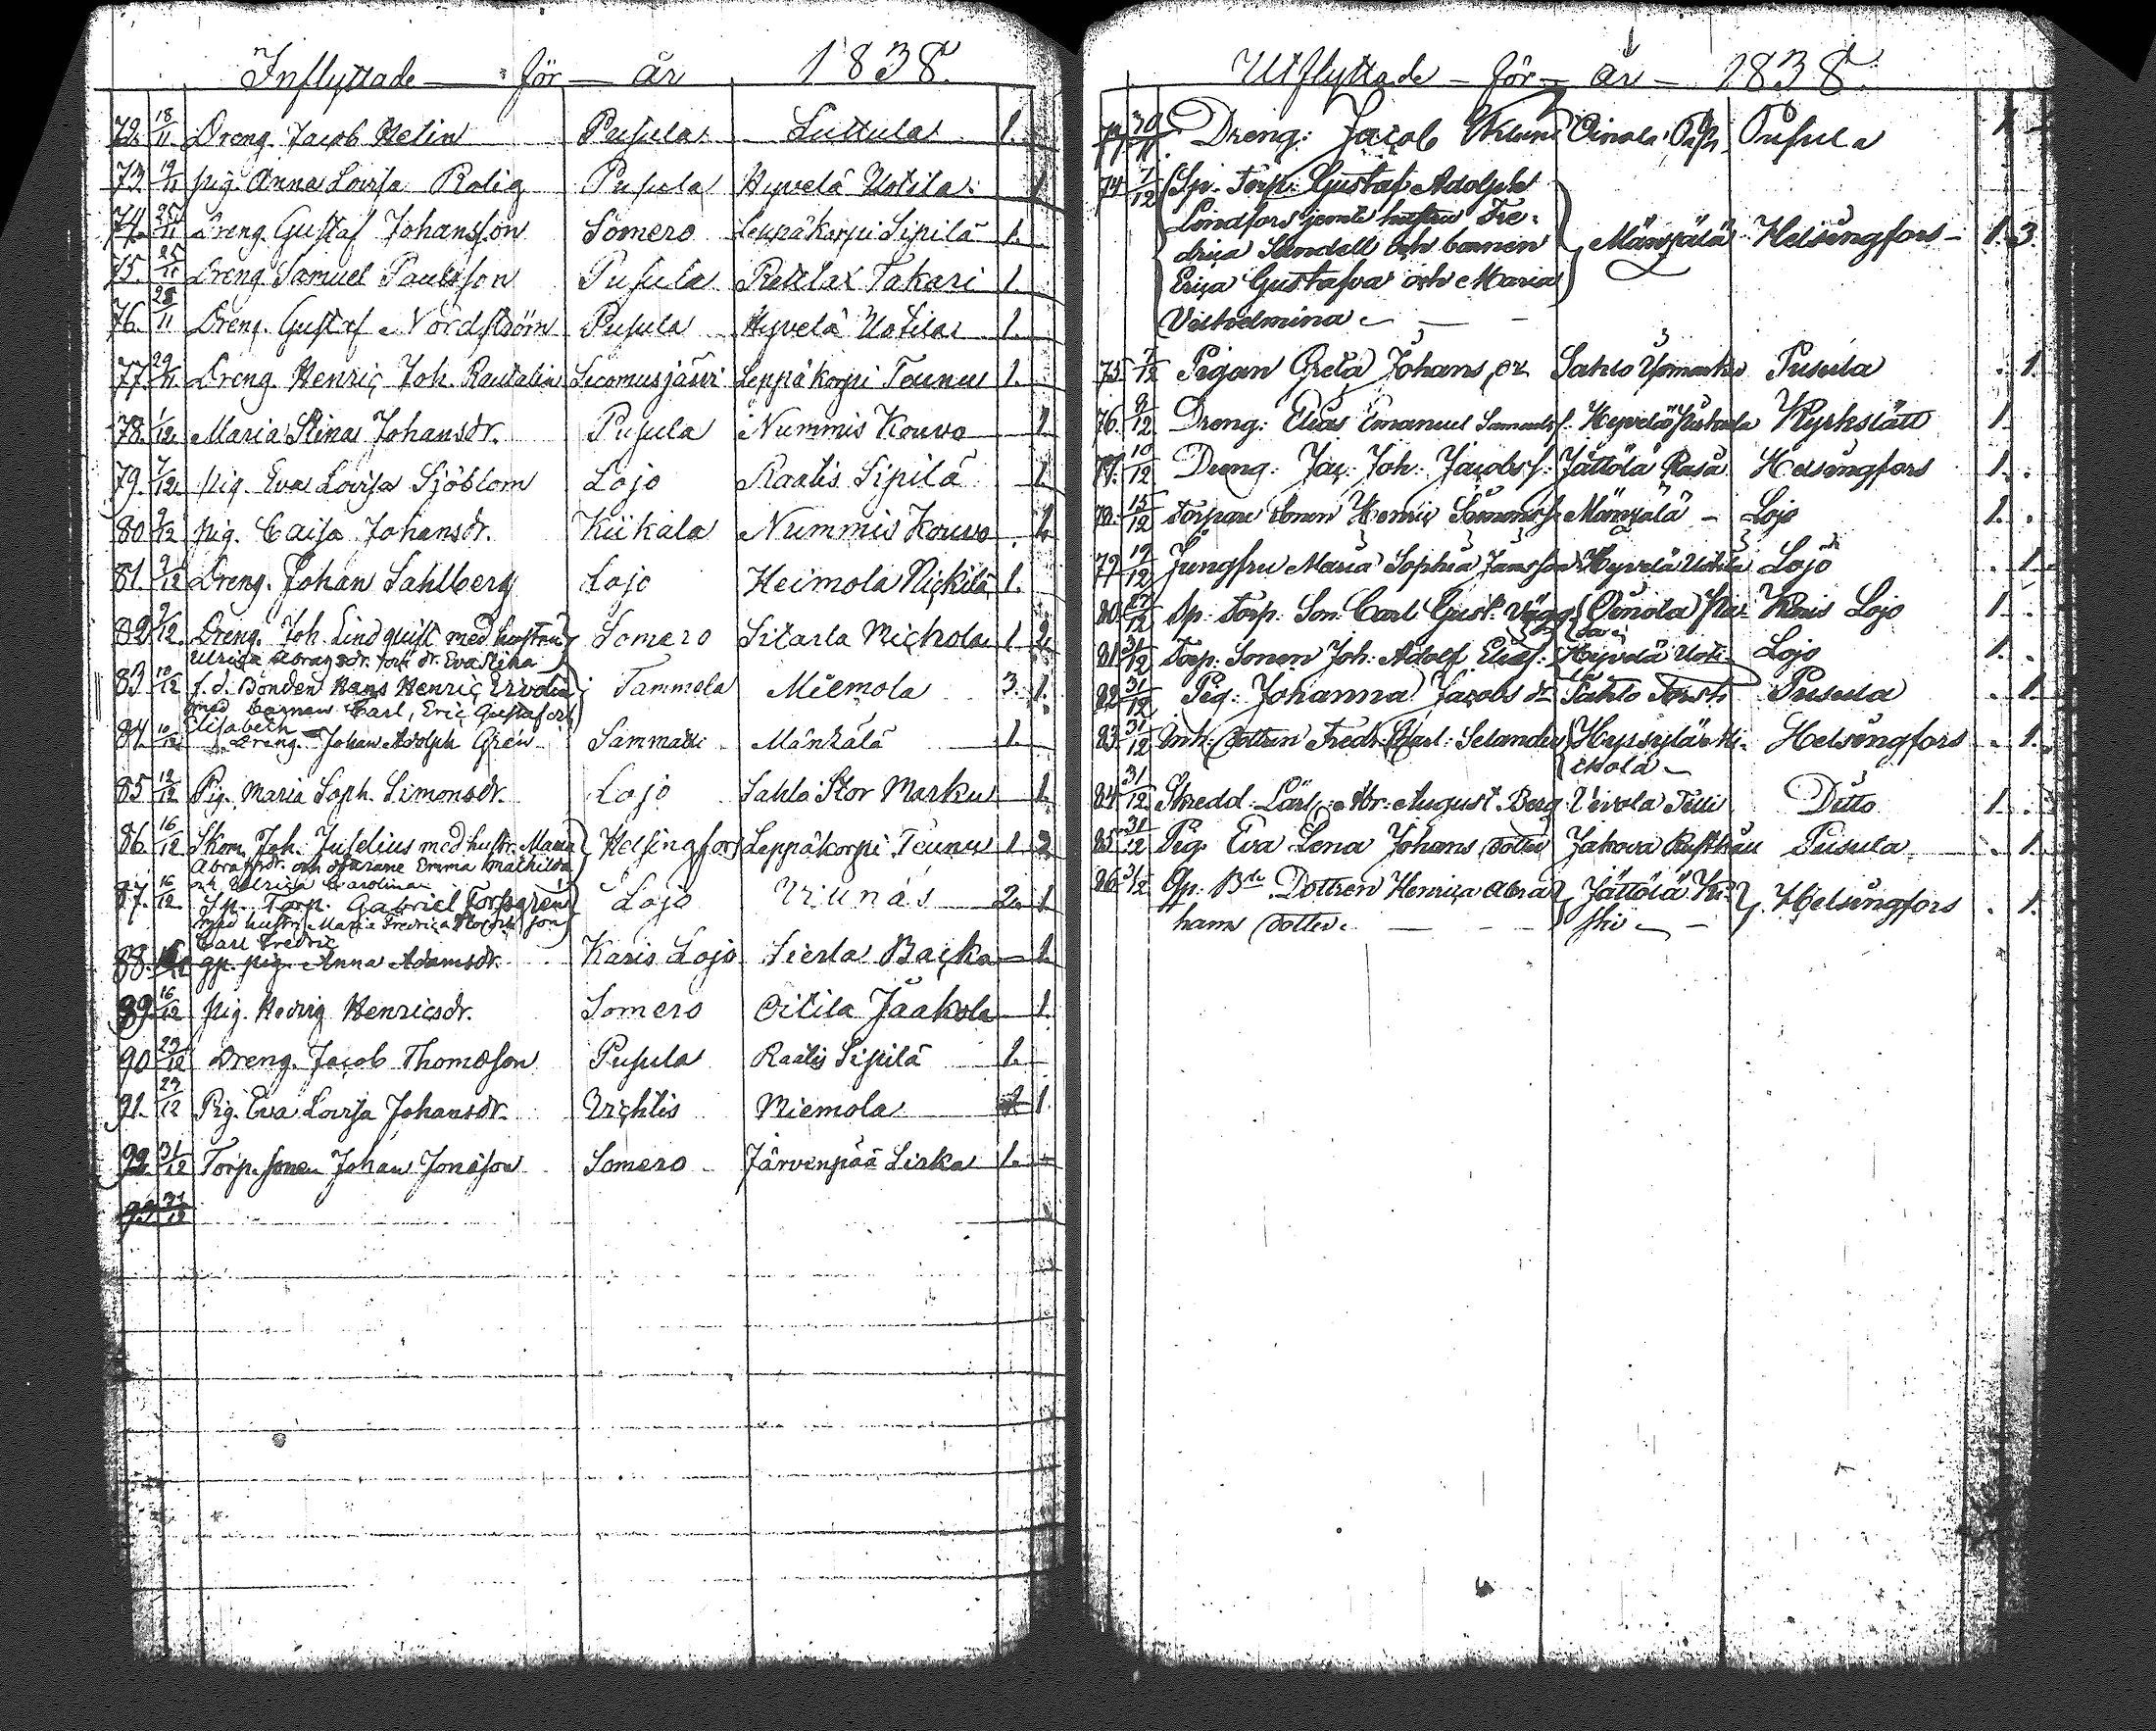 Inflyttade — för — år 1838.
72. 18/11 Dreng. Jacob Helin Pusula Luttula 1.
73. 19/11 pig. Anna Lovisa Rolig Pusula Hyvelä Uotila 1
74. 25/11 Dreng. Gustaf Johansson Somero Leppäkorpi Sipilä 1.
75. 25/11 Dreng. Samuel Paulsson Pusula Retlax Takari 1.
76. 28/11 Dreng. Gustaf Nordström Pusula Hyvelä Uotila 1.
77. 29/11 Dreng. Henric Joh. Rautalin Leppäkorpi Teunus 1.
78. 1/12. Maria Stina Johansdr. Pusula Nummis Kouvo 1.
79. 7/12. pig. Eva Lovisa Sjöblom Lojo Raatis Sipilä 1.
80 9/12 pig. Caisa Johansdr. Kiikala Nummis Kouvo 1.
81. 9/12 Dreng. Johan Sahlberg Lojo Heimola Nickilä 1.
82. 9/12. Dreng. Joh. Lindquist med hustru Somero Sitarla Michola 1 2.
Ulrica Abramsdr. och dr. Eva Stina
83. 10/12 f. d. Bonden Hans Henric Tammela Miemola 3. 1.
med barnen Carl, Eric Gustaf och
Elisabeth
84. 10/12 Dreng. Johan Adolph Gren Sammatti Mäntzälä 1.
85 12/12 Pig. Maria Soph. Simonsdr. Lojo Sahlo Stor Marku 1.
86. 16/12 Skom. Joh. Juselius med hustr. Maria Helsingfors Leppäkorpi Teunus 1 3
Abrahsdr. och Emma Mathilda
och Ulrica Carolina
87. 16/12 Sp. Torp. Gabriel Forsgren Lojo Wiunäs 2. 1
med hustr. Maria Fredrica son
Carl Fredric
88. 16/12 gp. pig. Anna Adamsdr. Karis Lojo Sierla Backa 1.
89. 16/12 pig. Hedvig Henricsdr. Somero Oitila Jaakola 1.
90 23/12 Dreng. Jacob Thomasson Pusula Raatis Sipilä 1.
91. 29/12 Pig. Eva Lovisa Johansdr. Vichtis Miemola 1.
92. 31/12 Torp. sonen Johan Jonasson Somero Järvenpää Sirka 1.
93 31/12
Utflyttade — för — år — 1838.
30/11. Dreng: Jacob Oinola Pusula 1
74 7/12 Sp. Torp: Gustaf Adolph
Londfors jemte hustru Fre-
drica Sandell och barnen Mäntzälä Helsingfors — 1. 3.
Erica Gustafva och Maria
Vilhelmina —
75. 7/12 Pigan Greta Johans dr Sahlo Pusula 1.
76. 9/12 Dreng: Elias Emanuel Samuels: Hyvelä Kyrkslätt 1.
77. 10/12 Dreng: Jac: Joh: Jacobss: Jättölä Rasu Helsingfors 1.
78. 15/12 Torpare sonen Henric Simonss: Mäntzälä — Lojo 1.
79 19/12 Jungfru Maria Sophia Jansson Hyvelä Uotila Lojo 1.
80 27/12 Sp. Torp. Son: Carl Gust. Oinola Karis Lojo 1.
81 31/12 Torp: Sonen Joh: Adolf Elias: Hyvelä Uoti- Lojo 1.
82. 31/12 Pig: Johanna Jacobs dr Sahlo Pusula 1.
83. 31/12 Inh: dottren Fredr: Selander Helsingfors 1.
84. 31/12 Skredd. Lärl: Abr: August. Berg Vivola Tilli Ditto 1.
85. 31/12 Pig. Eva Lena Johans dotter Jakova Pusula 1.
86. 31/12 Gp: Bde Dottren Henrica Abra- Jättölä Helsingfors 1.
hams dotter. —